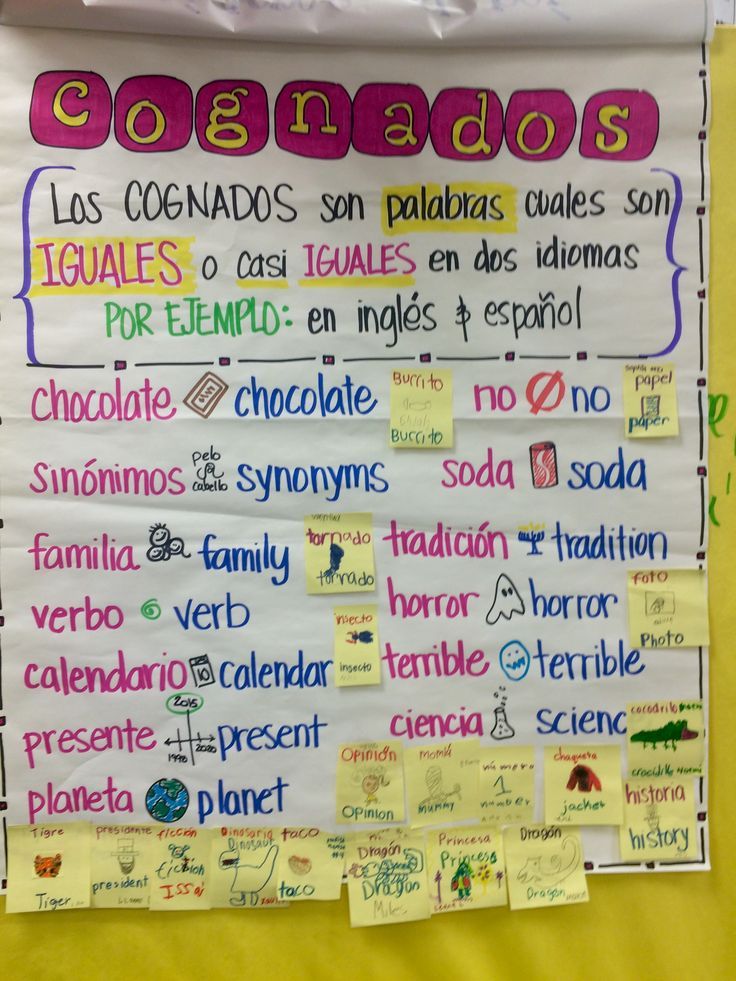 cognados
Los COGNADOS son palabras cuales son
IGUALES o casi IGUALES en dos idiomas
POR EJEMPLO: en inglés & español
chocolate chocolate
Burrito
Burrito
no no
papel
paper
sinónimos pelo cabello synonyms
soda soda
familia family
tornado
tornado
tradición tradition
verbo verb
horror horror
foto
Photo
calendario 10 calendar
insecto
insecto
terrible terrible
presente 2015 1990 2020 present
ciencia scienc
cocodrilo
crocidile
planeta planet
Opinión
Opinion
momia
mummy
número
1
number
chaqueta
jacket
historia
history
Tigre
Tiger
presidente
president
ficción
fiction
Issai
Dinosario
Dinosaur
taco
taco
Dragón
Dragon
Miles
Princesa
Princesa
Dragón
Dragon